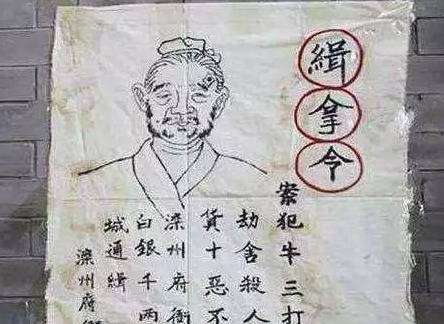 緝拿令
案犯牛三打
劫舍殺人
貨十惡不
滦州府衙
白銀千两
城通緝
滦州府